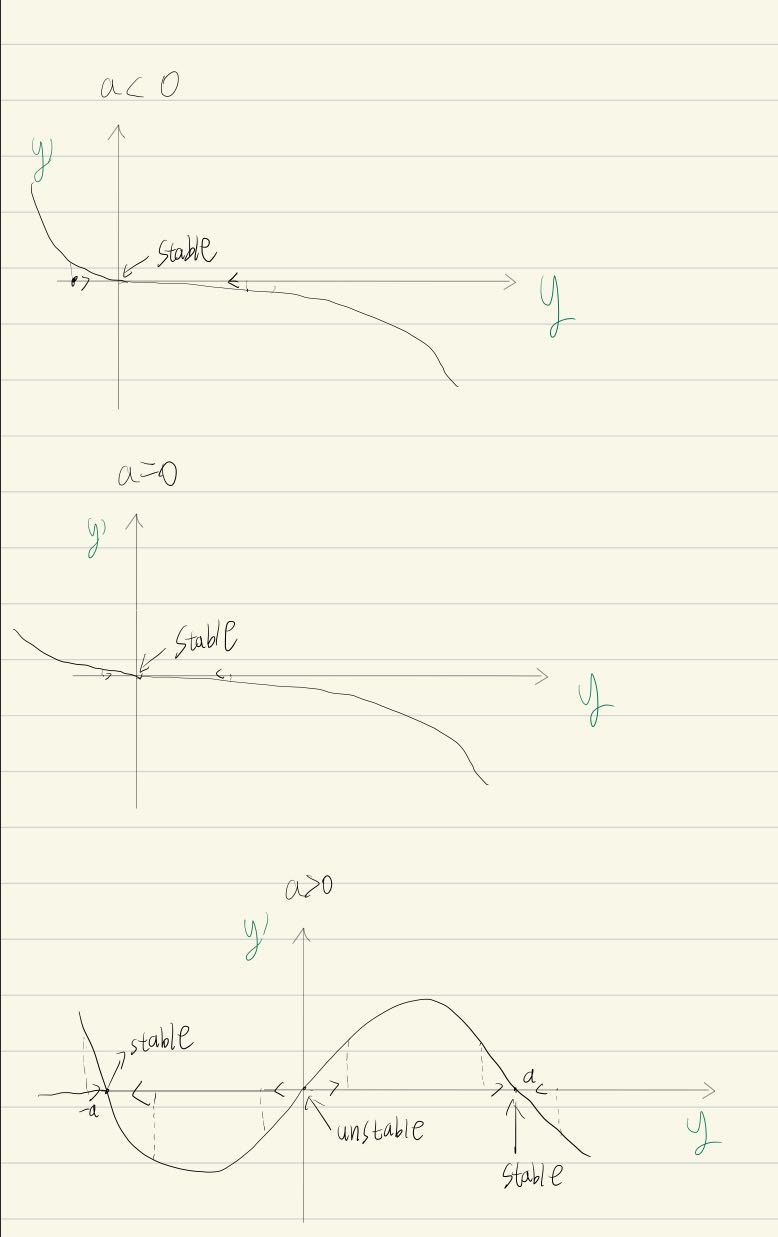 a < 0
y'
stable
y
a=0
y'
stable
y
a>0
y'
stable
a
-a
unstable
y
stable